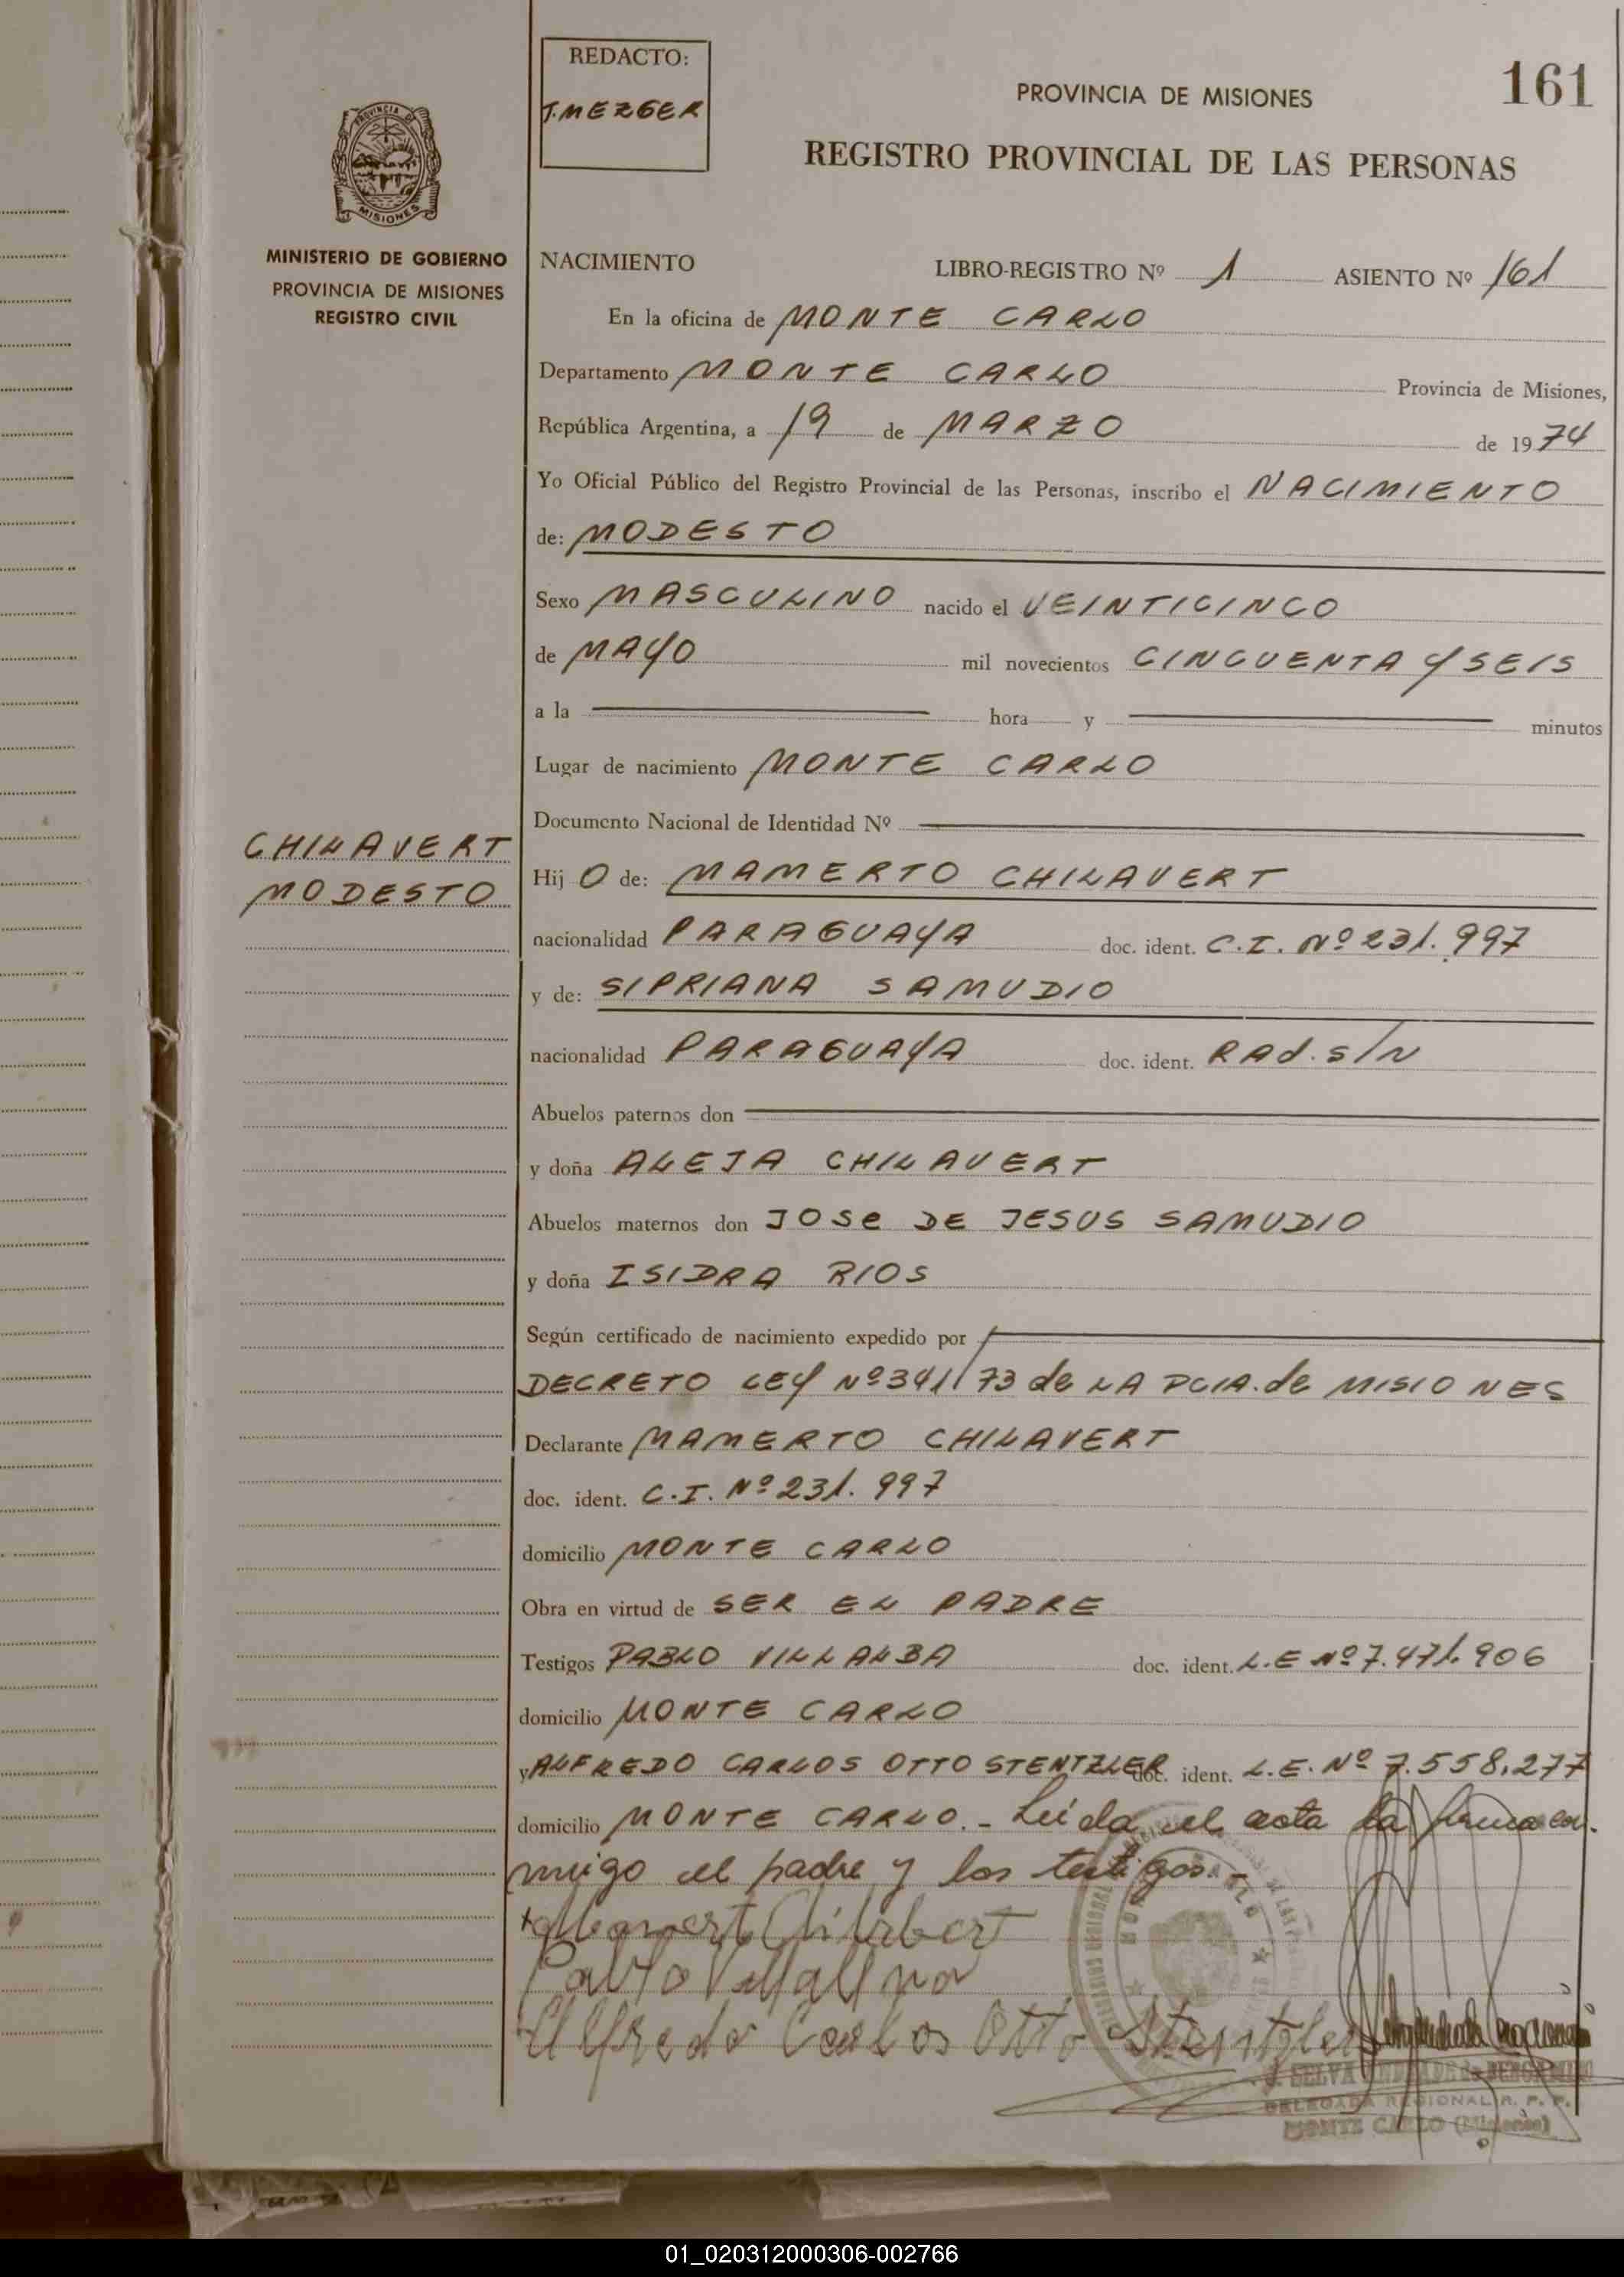 REDACTO:
J. MEZGER
PROVINCIA DE MISIONES
161
REGISTRO PROVINCIAL DE LAS PERSONAS
PROVINCIA DE
MISIONES
MINISTERIO DE GOBIERNO
PROVINCIA DE MISIONES
REGISTRO CIVIL
NACIMIENTO LIBRO-REGISTRO Nº 1 ASIENTO Nº 161
En la oficina de MONTE CARLO
Departamento MONTE CARLO Provincia de Misiones,
República Argentina, a 19 de MARZO de 1974
Yo Oficial Público del Registro Provincial de las Personas, inscribo el NACIMIENTO
de: MODESTO
Sexo MASCULINO nacido el VEINTICINCO
de MAYO mil novecientos CINCUENTA Y SEIS
a la hora y minutos
Lugar de nacimiento MONTE CARLO
Documento Nacional de Identidad Nº
CHILAVERT
MODESTO
Hij O de: MAMERTO CHILAVERT
nacionalidad PARAGUAYA doc. ident. C.I. Nº 231.997
y de: SIPRIANA SAMUDIO
nacionalidad PARAGUAYA doc. ident. RAd. S/N
Abuelos paternos don
y doña ALEJA CHILAVERT
Abuelos maternos don JOSe DE JESUS SAMUDIO
y doña ISIDRA RIOS
Según certificado de nacimiento expedido por
DECRETO LEY Nº 341/73 de LA PCIA. de MISIONES
Declarante MAMERTO CHILAVERT
doc. ident. C.I. Nº 231.997
domicilio MONTE CARLO
Obra en virtud de SER EL PADRE
Testigos PABLO VILLALBA doc. ident. L.E Nº 7.471.906
domicilio MONTE CARLO
y ALFREDO CARLOS OTTO STENTZLER doc. ident. L.E. Nº 7.558.277
domicilio MONTE CARLO. - Leída el acta la firma con-
migo el padre y los testigos. -
Mamert Chilabert
Pablo Villalba
Alfredo Carlos Otto Stentzler
SELVA
DELEGADA REGIONAL R. P. P.
MONTE CARLO (Misiones)
01_020312000306-002766